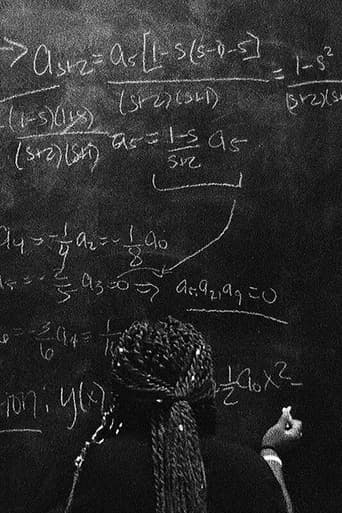 → a_{s+2} = a_s[1-s(s-0-s)] / (s+2)(s+1) = 1-s² / (s+2)(s+1)
(1-s)(1+s) / (s+2)(s+1) a_s = 1-s / s+2 a_s
a₄ = -1/4 a₂ = -1/8 a₀
= -2/5 a₃ = 0 ⇒ a₅, a₇, a₉ = 0
3/6 a₄ =
y(x) 1/2 a₀ x²